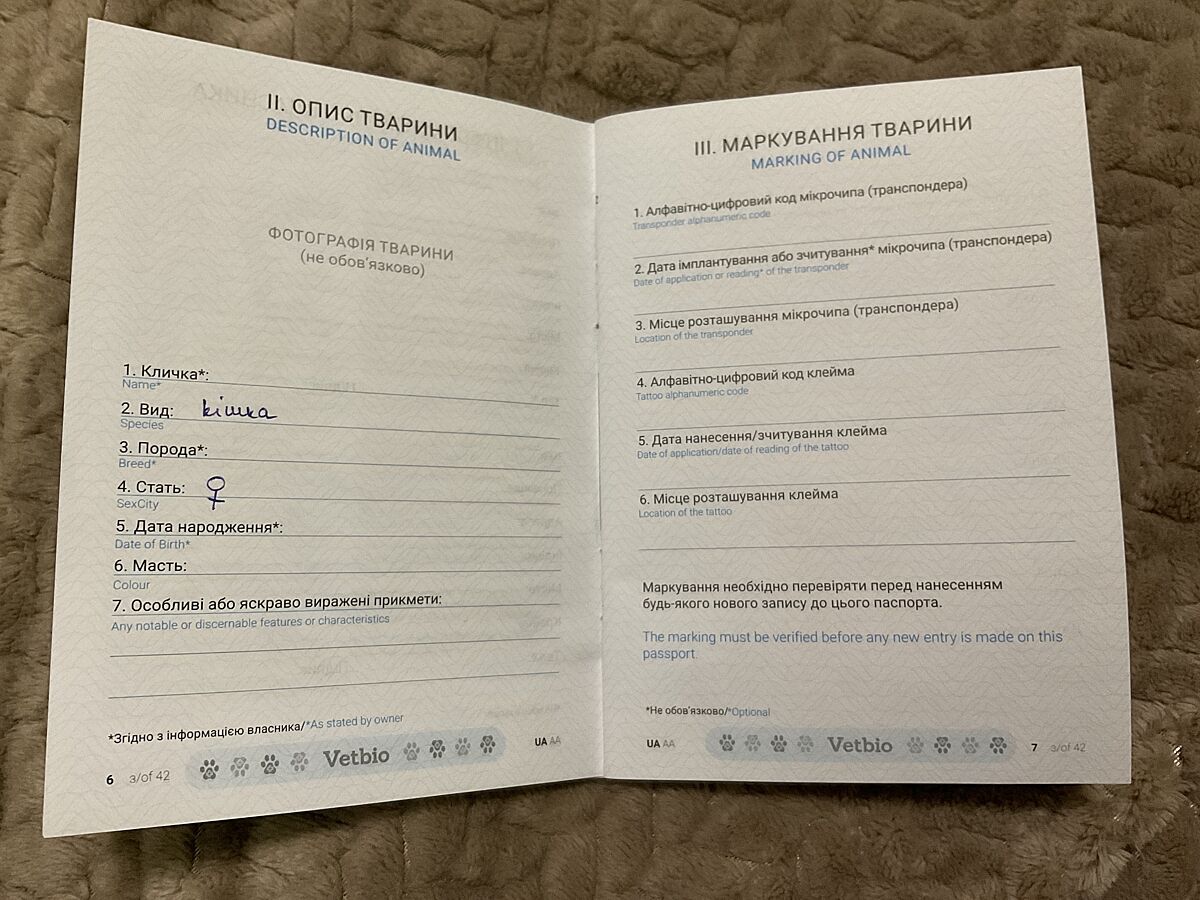 II. ОПИС ТВАРИНИ
DESCRIPTION OF ANIMAL
ФОТОГРАФІЯ ТВАРИНИ
(не обов'язково)
1. Кличка*:
Name*
2. Вид: кішка
Species
3. Порода*:
Breed*
4. Стать: ♀
SexCity
5. Дата народження*:
Date of Birth*
6. Масть:
Colour
7. Особливі або яскраво виражені прикмети:
Any notable or discernable features or characteristics
*Згідно з інформацією власника/*As stated by owner
UA AA
Vetbio
6 з/of 42
III. МАРКУВАННЯ ТВАРИНИ
MARKING OF ANIMAL
1. Алфавітно-цифровий код мікрочипа (транспондера)
Transponder alphanumeric code
2. Дата імплантування або зчитування* мікрочипа (транспондера)
Date of application or reading* of the transponder
3. Місце розташування мікрочипа (транспондера)
Location of the transponder
4. Алфавітно-цифровий код клейма
Tattoo alphanumeric code
5. Дата нанесення/зчитування клейма
Date of application/date of reading of the tattoo
6. Місце розташування клейма
Location of the tattoo
Маркування необхідно перевіряти перед нанесенням
будь-якого нового запису до цього паспорта.
The marking must be verified before any new entry is made on this
passport.
*Не обов'язково/*Optional
UA AA
Vetbio
7 з/of 42